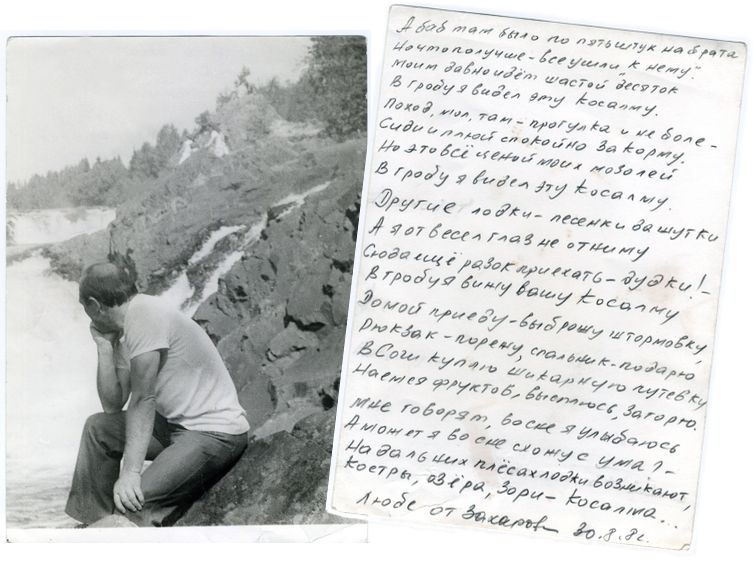 А баб там было по пять штук на брата
Но что получше – все ушли „к нему“.
Моим давно идёт шастой десяток
В гробу я видел эту Косалму.
Поход, мол, там – прогулка и не боле –
Сиди и плюй спокойно за корму,
Но это всё ценой моих мозолей
В гробу я видел эту Косалму.
Другие лодки – песенки да шутки
А я от весел глаз не отниму
Сюда ещё разок приехать – дудки! –
В гробу я вижу вашу Косалму
Домой приеду – выброшу штормовку,
Рюкзак – порежу, спальник – подарю
В Сочи куплю шикарную путевку
Наемся фруктов, высплюсь, загорю.
Мне говорят, во сне я улыбаюсь
А может я во сне схожу с ума? –
На дальних плёсах лодки возникают,
Костры, озёра, зори – Косалма...
Любе от Захаров 30.8.8